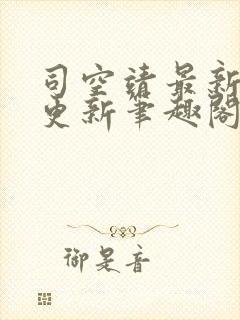 司空靖最新
更新笔趣阁
御是音